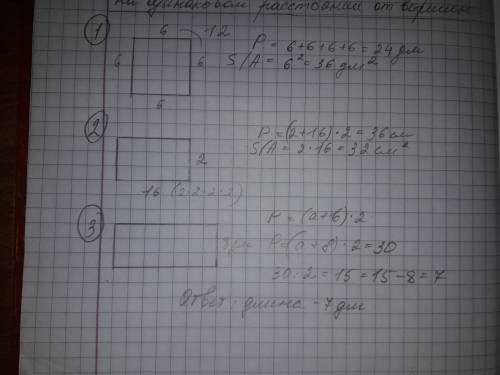 на одинаковом расстоянии от вершин
1
6 12
6 6
6
P = 6+6+6+6 = 24 дм
S/A = 6² = 36 дм²
2
2
16 (2·2·2·2)
P = (2+16)·2 = 36 см
S/A = 2·16 = 32 см²
3
P = (a+b)·2
P = (a+8)·2 = 30
30:2 = 15 = 15-8 = 7
Ответ: длина - 7 дм